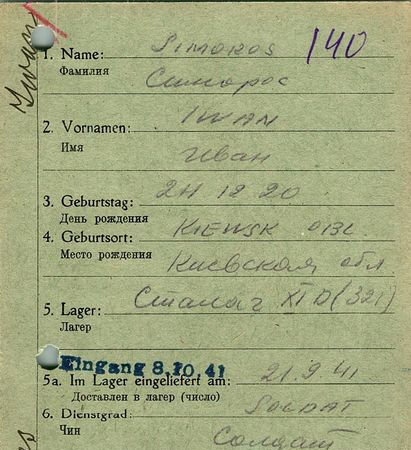 Iwan
140
1. Name: SIMOROS
Фамилия Симорос
2. Vornamen: IWAN
Имя Иван
3. Geburtstag: 24 12 20
День рождения
4. Geburtsort: KIEWSK OBL
Место рождения Киевская обл
5. Lager: Сталаг XI D (321)
Лагер
Eingang 8.10.41
5a. Im Lager eingeliefert am: 21.9.41
Доставлен в лагер (число)
6. Dienstgrad: SOLDAT
Чин Солдат